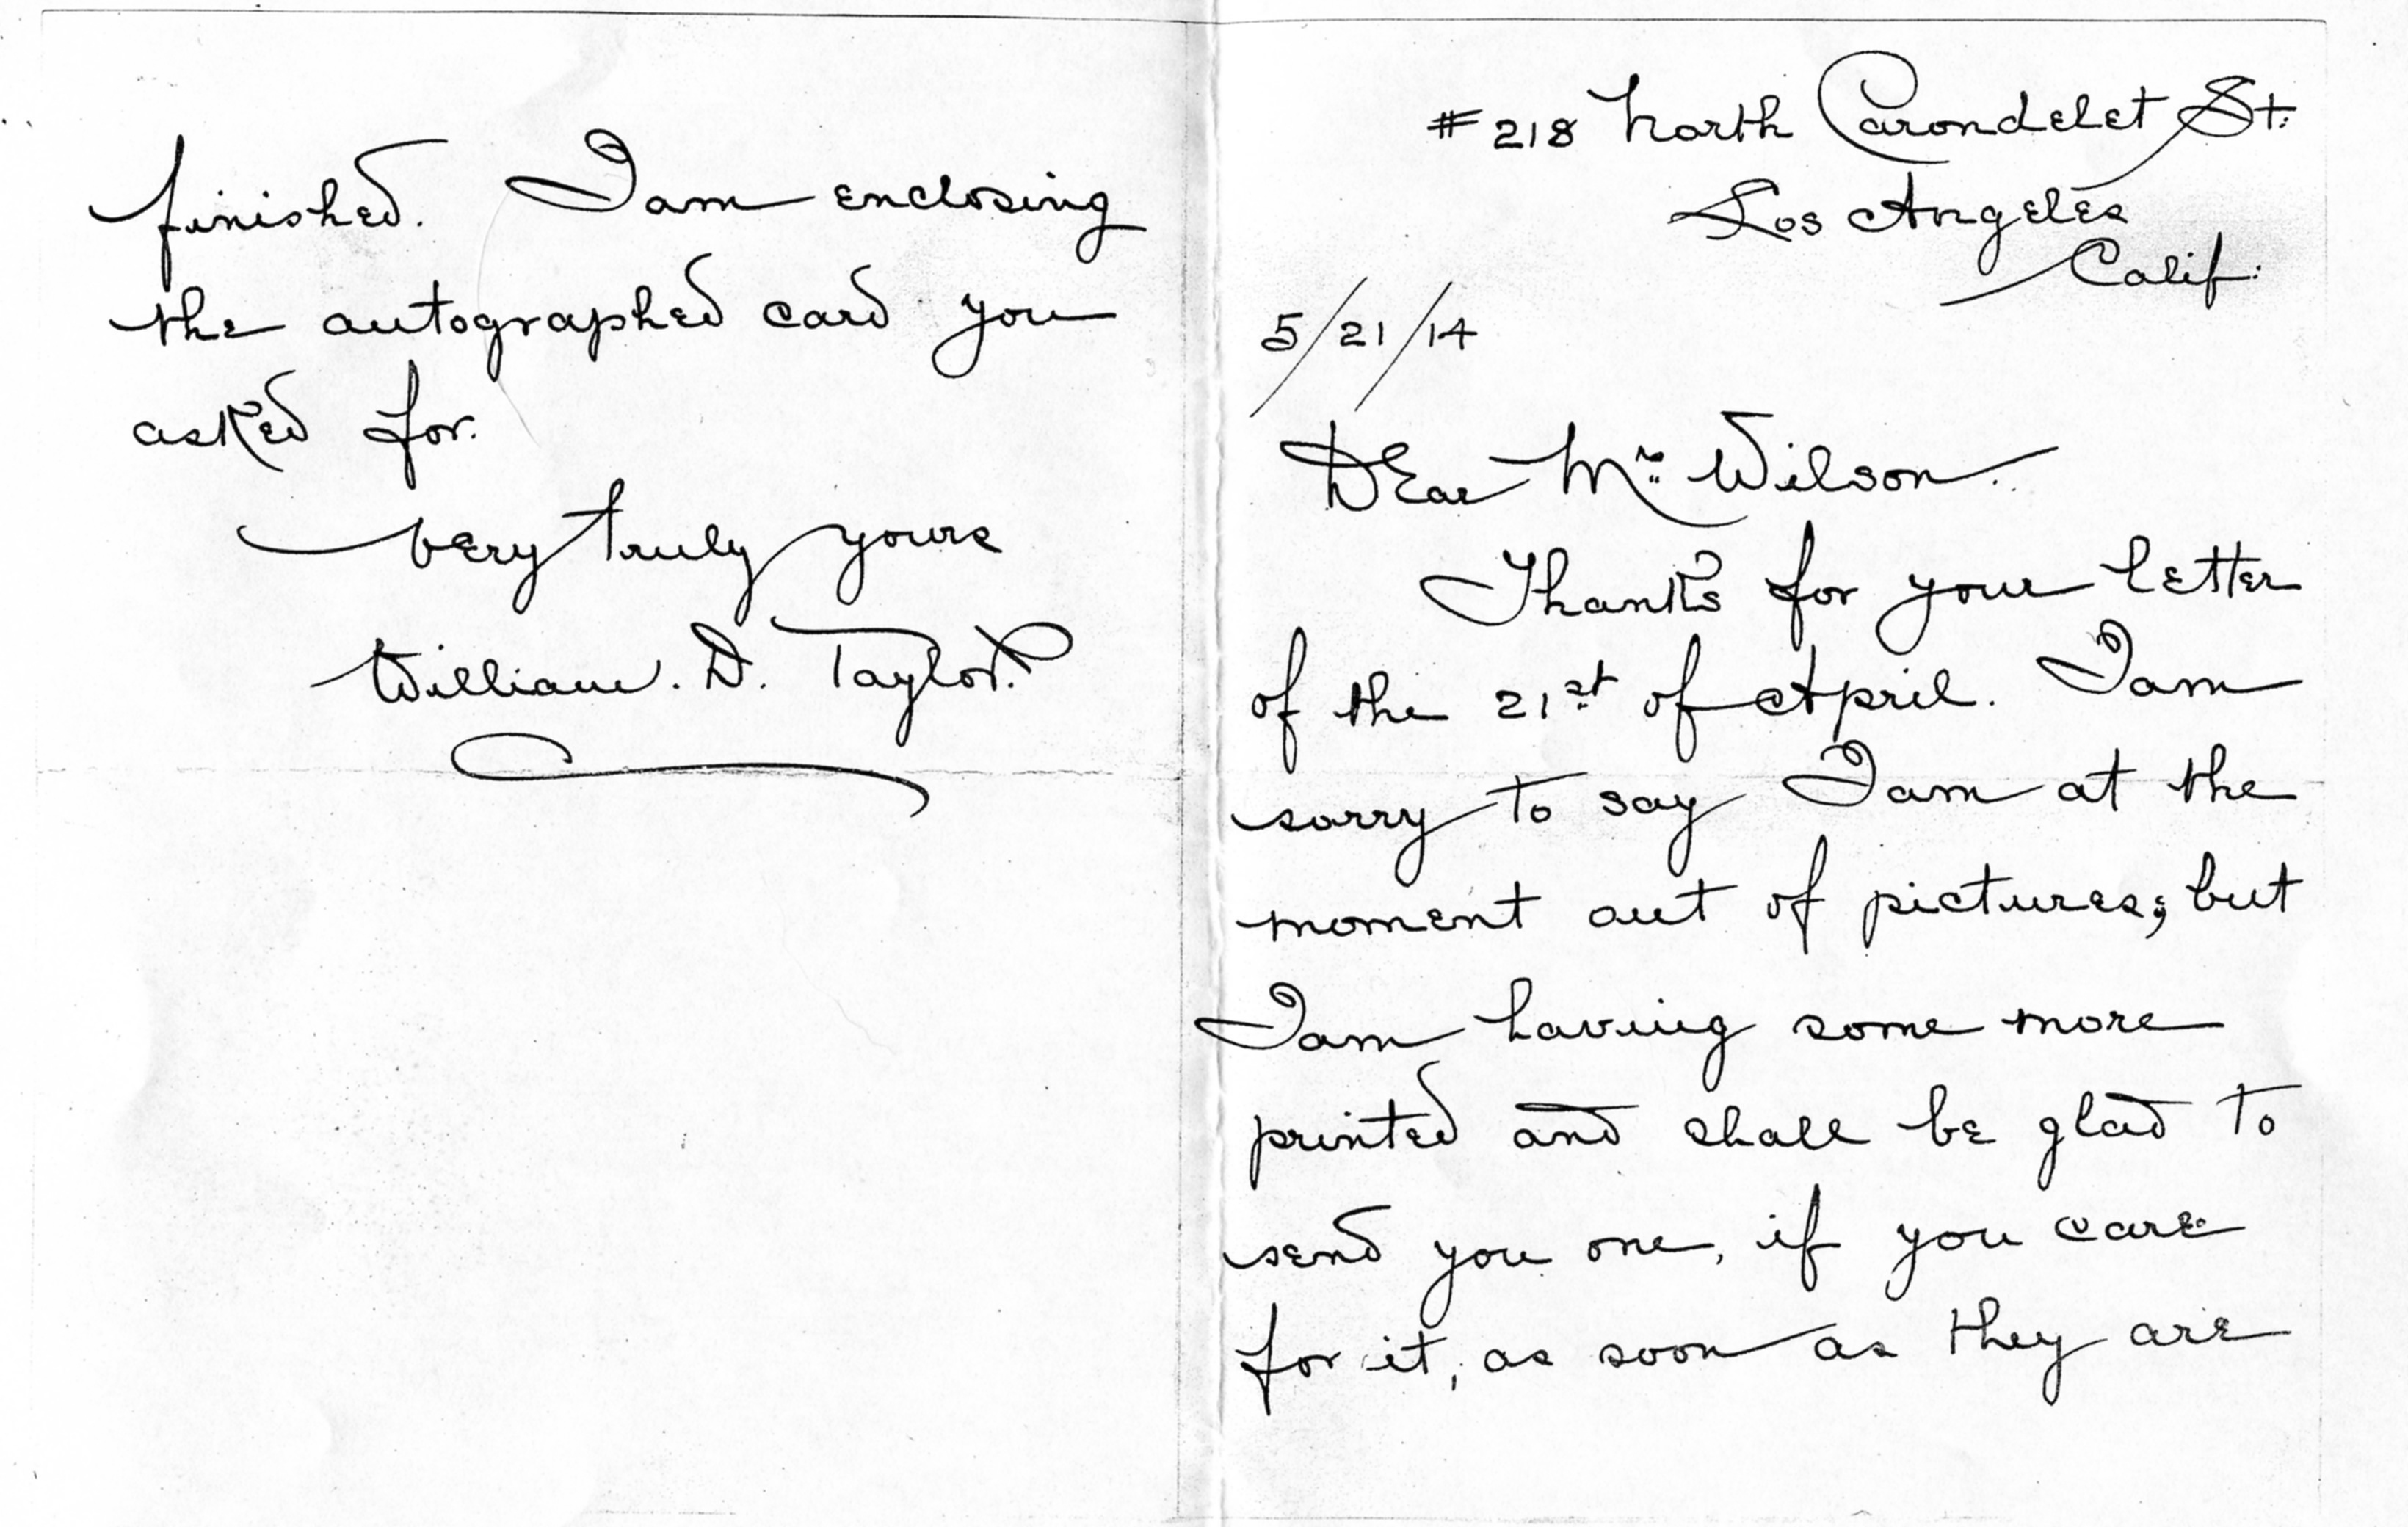 #218 North Carondelet St.
Los Angeles
Calif.
5/21/14
Dear Mr. Wilson.
Thanks for your letter
of the 21st of April. I am
sorry to say I am at the
moment out of pictures; but
I am having some more
printed and shall be glad to
send you one, if you care
for it, as soon as they are
finished. I am enclosing
the autographed card you
asked for.
Very truly yours
William. D. Taylor.